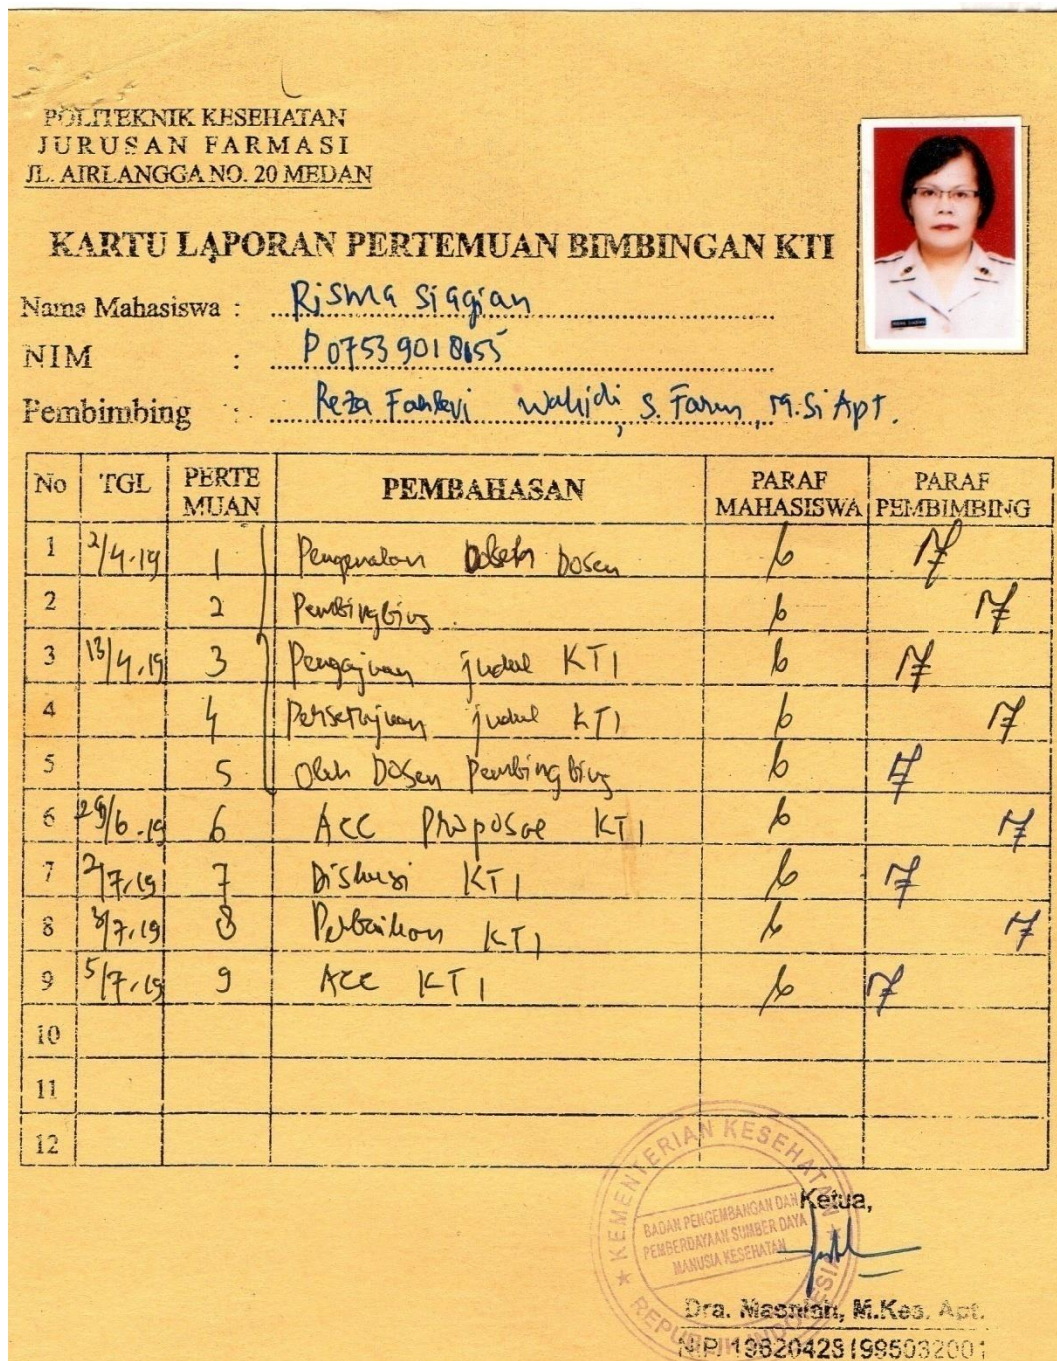 POLITEKNIK KESEHATAN
JURUSAN FARMASI
JL. AIRLANGGA NO. 20 MEDAN
KARTU LAPORAN PERTEMUAN BIMBINGAN KTI
Nama Mahasiswa : Risma Siagian
NIM : P07539018155
Pembimbing : Reza Wahidi, S. Farm, M.Si Apt.
No TGL PERTE MUAN PEMBAHASAN PARAF MAHASISWA PARAF PEMBIMBING
1 2/4-19 1 Pengenalan Dosen
2 2 Pembingbing.
3 13/4.19 3 Pengajuan judul KTI
4 4 Persetujuan judul KTI
5 5 Oleh Dosen Pembingbing
6 /6-19 6 ACC Proposal KTI
7 2/7.19 7 Diskusi KTI
8 3/7.19 8 Perbaikan KTI
9 5/7.19 9 ACC KTI
10
11
12
KEMENTERIAN KESEHATAN
REPUBLIK INDONESIA
BADAN PENGEMBANGAN DAN
PEMBERDAYAAN SUMBER DAYA
MANUSIA KESEHATAN
Ketua,
Dra. Masniah, M.Kes, Apt.
NIP. 196204281995032001